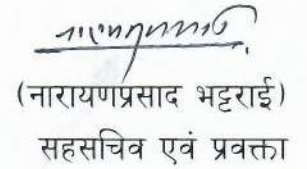 (नारायणप्रसाद भट्टराई)
सहसचिव एवं प्रवक्ता